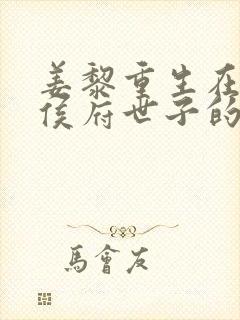 姜黎重生在
侯府世子的
馬會友